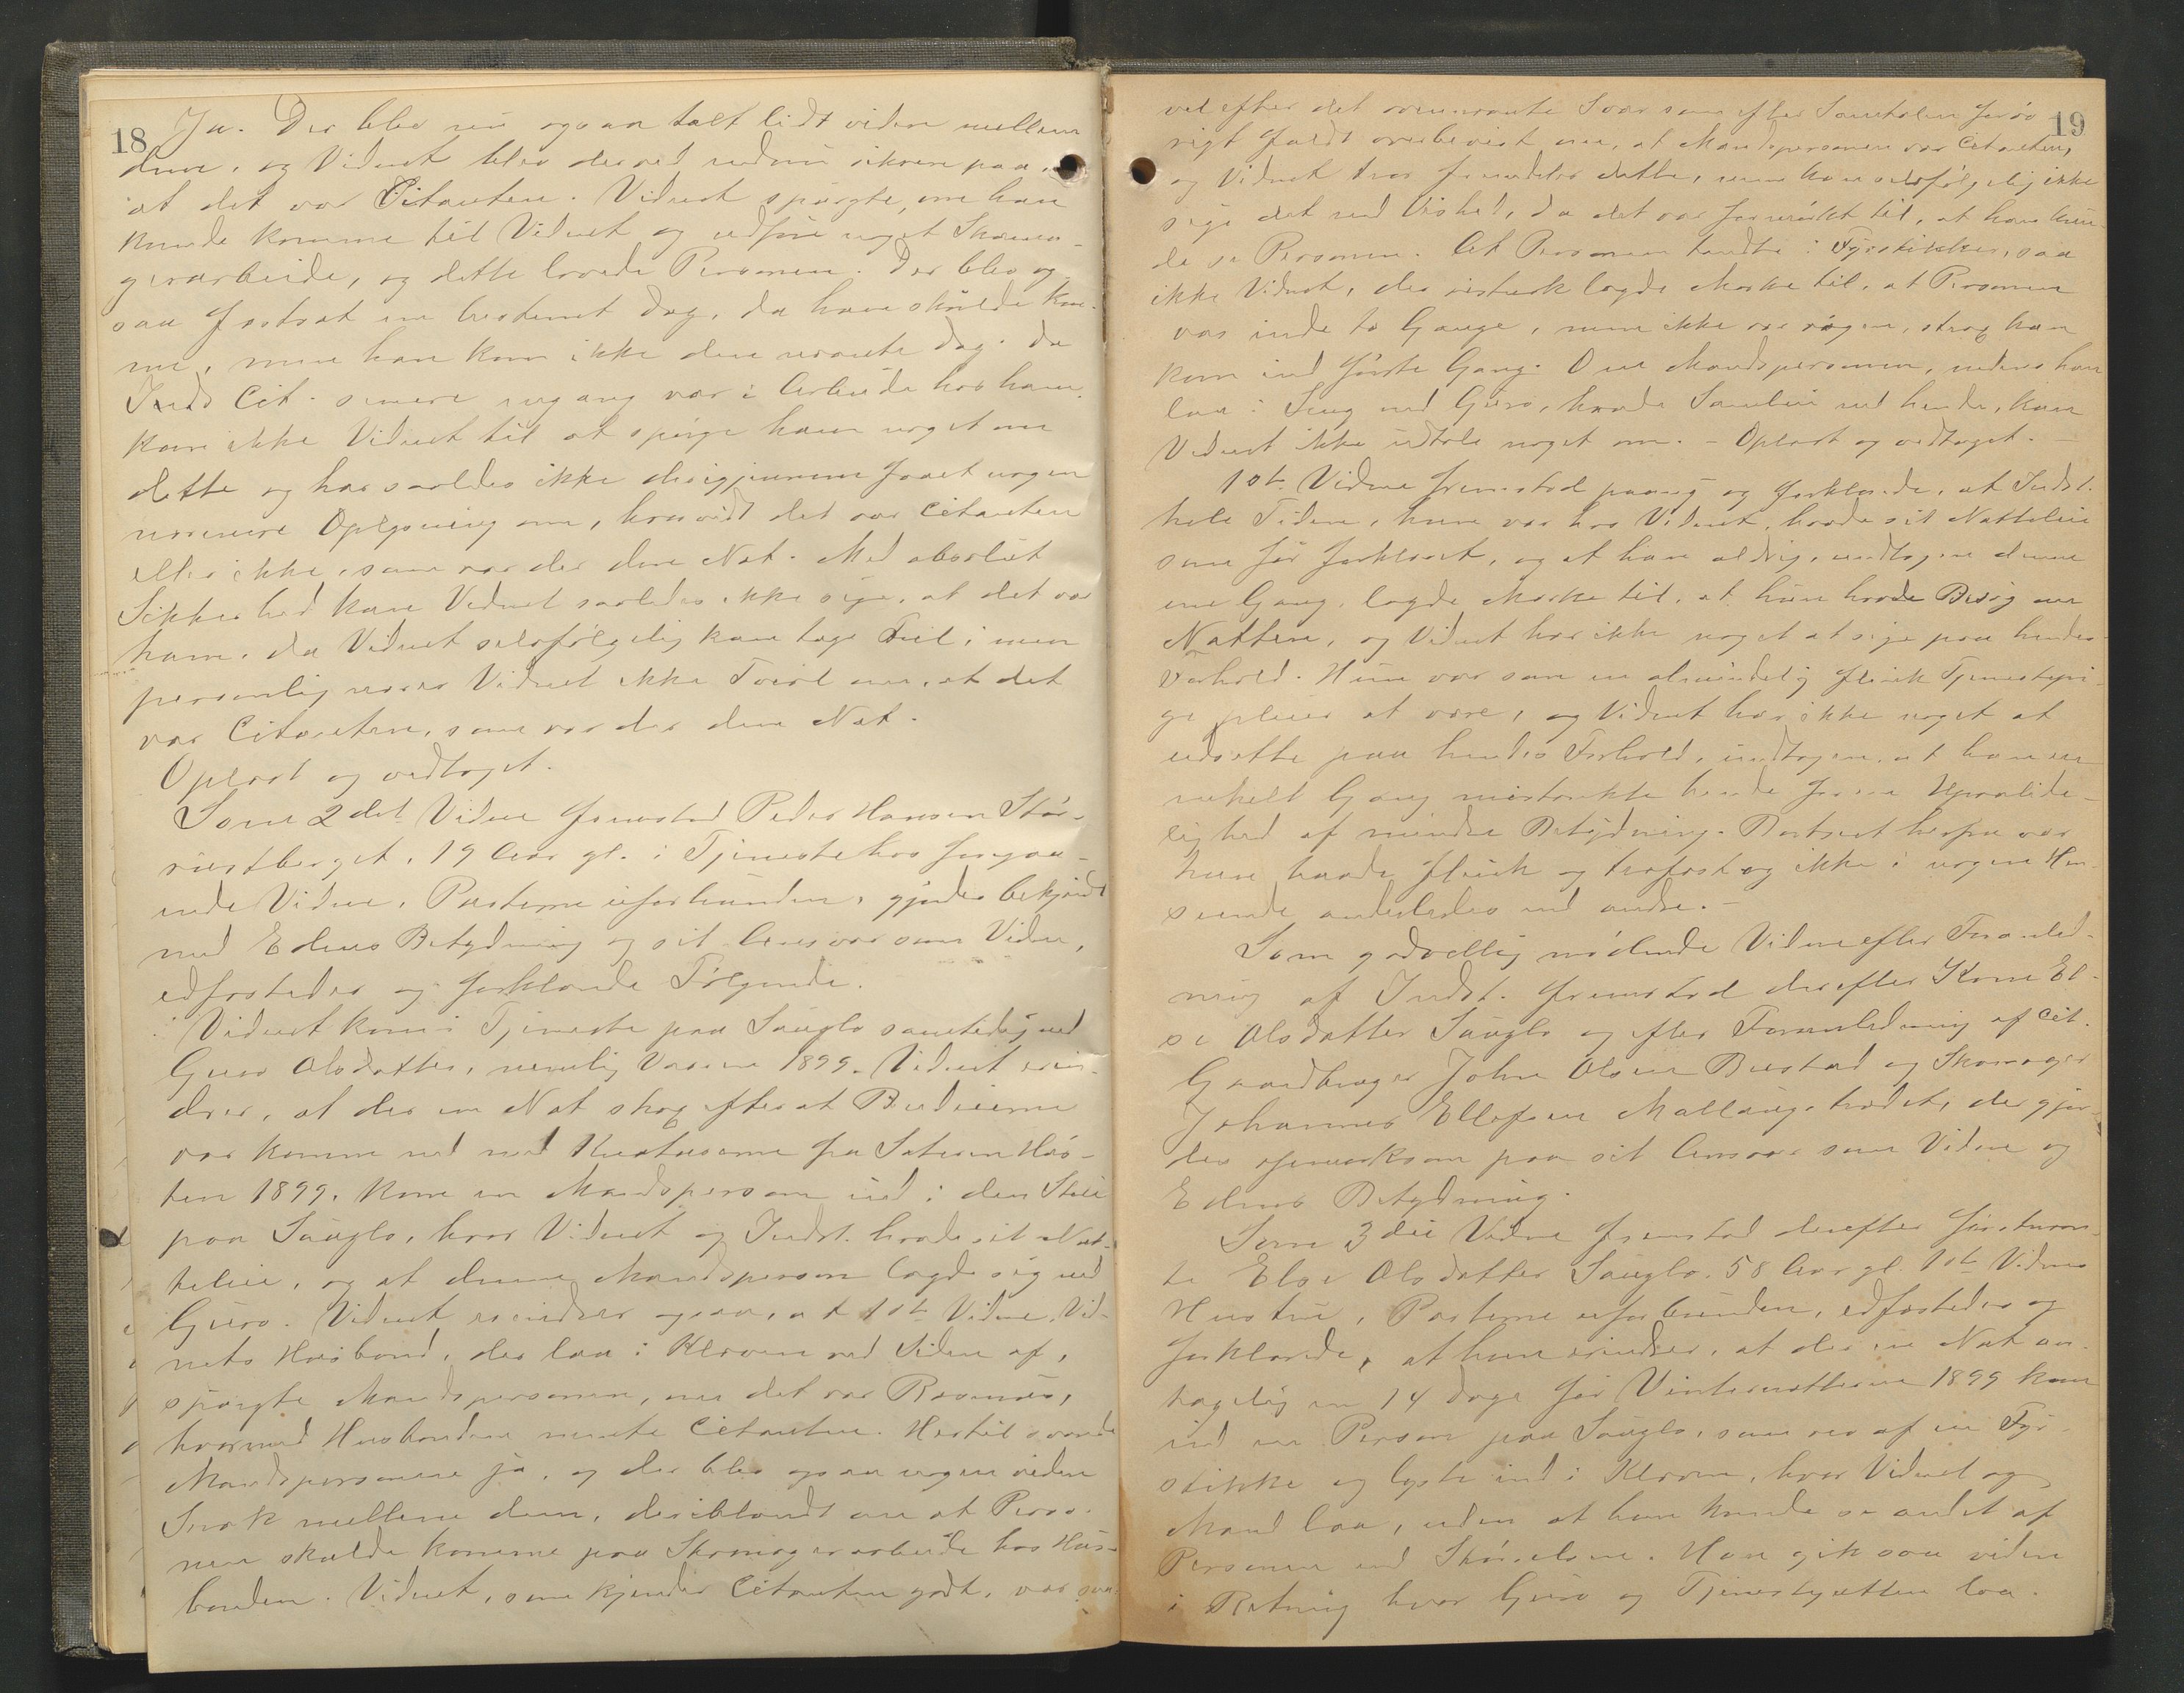 18
Ja. Der blev nu ogsaa talt lidt videre mellem
dem, og Vidnet blev derved endnu sikrere paa,
at det var Citanten. Vidnet spurgte, om han
kunde komme til Vidnet og udføre noget Skoma-
gerarbeide, og dette lovede Personen. Der blev og-
saa fastsat en bestemt Dag, da han skulde kom-
me, men han kom ikke den nævnte Dag. Da
Cit. senere engang var i Arbeide hos ham,
kom ikke Vidnet til at spørge ham noget om
dette og har saaledes ikke derigjennem faaet nogen
nærmere Oplysning om, hvorvidt det var Citanten
eller ikke, som var der den Nat. Med absolut
Sikkerhed kan Vidnet saaledes ikke sige, at det var
ham, da Vidnet selvfølgelig kan tage Feil; men
personlig nærer Vidnet ikke Tvivl om, at det
var Citanten, som var der den Nat.
Oplæst og vedtaget.
Som 2det Vidne fremstod Peder Hansen
19 Aar gl. i Tjeneste hos foregaa-
ende Vidne, Parterne uforbunden, gjordes bekjendt
med Edens Betydning og sit Ansvar som Vidne,
edfæstedes og forklarede Følgende.
Vidnet kom i Tjeneste paa Sauglo samtidig med
Guro Olsdatter, nemlig Vaaren 1899. Vidnet erin-
drer, at der en Nat strax efterat Budeierne
var komne ned med Kreaturerne fra Sæteren Høs-
ten 1899, kom en Mandsperson ind i den Stue
paa Sauglo, hvor Vidnet og Indst. havde sit Nat-
teleie, og at denne Mandsperson lagde sig ved
Guro. Vidnet erindrer ogsaa, at 1ste Vidne, Vid-
nets Husbond, der laa i Kleven ved Siden af,
spurgte Mandspersonen, om det var Rasmus,
hvormed Husbonden mente Citanten. Hertil svarede
Mandspersonen ja, og der blev ogsaa nogen viden
Snak mellem dem, deriblandt om at Perso-
nen skulde komme paa Skomagerarbeide hos Hus-
bonden. Vidnet, som kjender Citanten godt, var saa-
19
vel efter det ovennævnte Svar som efter Samtalen for øv-
rigt fuldt overbevist om, at Mandspersonen var Citanten,
og Vidnet tror fremdeles dette, men kan selvfølgelig ikke
sige det med Vished, da det var for mørkt til, at han kun-
de se Personen. At Personen tændte i Fyrstikker, saa
ikke Vidnet, der vistnok lagde Mærke til, at Personen
var inde to Gange, men ikke var vaagen, strax han
kom ind første Gang. Om Mandspersonen, medens han
laa i Seng med Guro, havde Samleie med hende, kan
Vidnet ikke udtale noget om. - Oplæst og vedtaget. -
1ste Vidne fremstod paany og forklarede, at Indst.
hele Tiden, hun var hos Vidnet, havde sit Natteleie
som før forklaret, og at han aldrig, undtagen denne
ene Gang, lagde Mærke til, at hun havde Besøg om
Natten, og Vidnet har ikke noget at sige paa hendes
Forhold. Hun var som en almindelig flink Tjenestepi-
ge pleier at være, og Vidnet har ikke noget at
udsætte paa hendes Forhold, undtagen, at han en
enkelt Gang mistænkte hende for en Upaalide-
lighed af mindre Betydning. Bortseet herfra var
hun baade flink og trofast og ikke i nogen Hen-
seende anderledes end andre. -
Som godvillig mødende Vidne efter Foranled-
ning af Indst. fremstod derefter Kone El-
se Olsdatter Sauglo og efter Foranledning af Cit.
Gaardbruger John Olsen og Skomager
Johannes Ellefsen der gjor-
des opmærksom paa sit Ansvar som Vidne og
Edens Betydning.
Som 3die Vidne fremstod derefter førstnævn-
te Else Olsdatter Sauglo, 58 Aar gl. 1ste Vidnes
Hustru, Parterne uforbunden, edfæstedes og
forklarede, at hun erindrer, at der en Nat an-
tagelig en 14 Dage før Vinternætterne 1899 kom
ind en Person paa Sauglo, som rev af en Fyr-
stikke og lyste ind i Kleven, hvor Vidnet og
Mand laa, uden at hun kunde se andet af
Personen end Skikkelsen. Han gik saa viden
i Retning hvor Guro og Tjenestgutten laa.